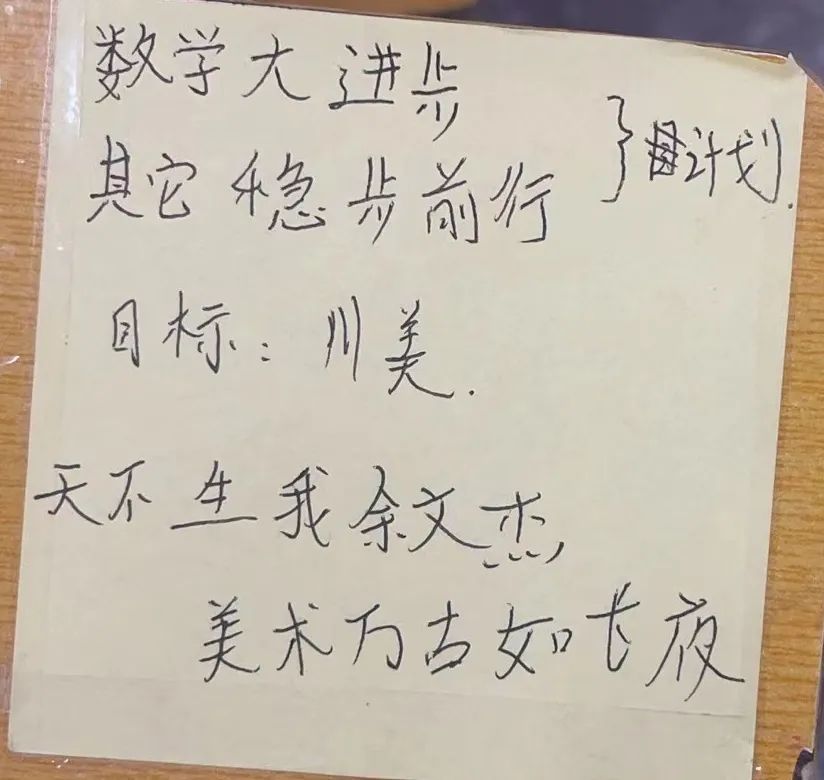 数学大进步
其它稳步前行
}计划.
目标:川美.
天不生我余文杰,
美术万古如长夜